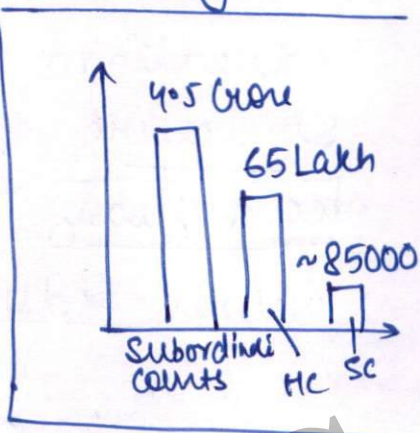 4.5 Crore
65 Lakh
~85000
Subordinai
Courts
HC
SC